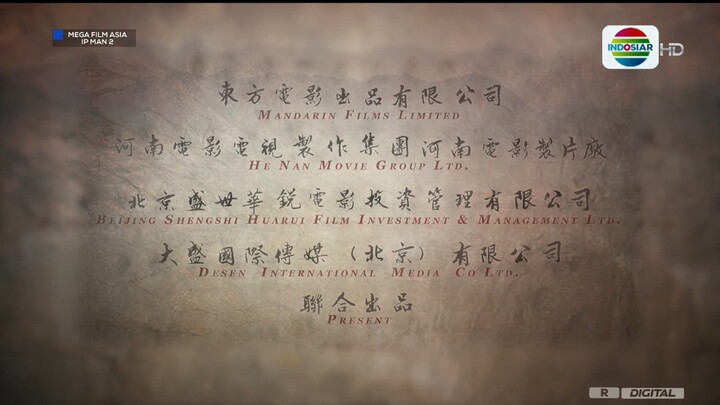 MEGA FILM ASIA
IP MAN 2
INDOSIAR HD
東方電影出品有限公司
MANDARIN FILMS LIMITED
河南電影電視製作集團河南電影製片廠
HE NAN MOVIE GROUP LTD.
北京盛世華銳電影投資管理有限公司
BEIJING SHENGSHI HUARUI FILM INVESTMENT & MANAGEMENT LTD.
大盛國際傳媒（北京）有限公司
DESEN INTERNATIONAL MEDIA CO LTD.
聯合出品
PRESENT
R DIGITAL